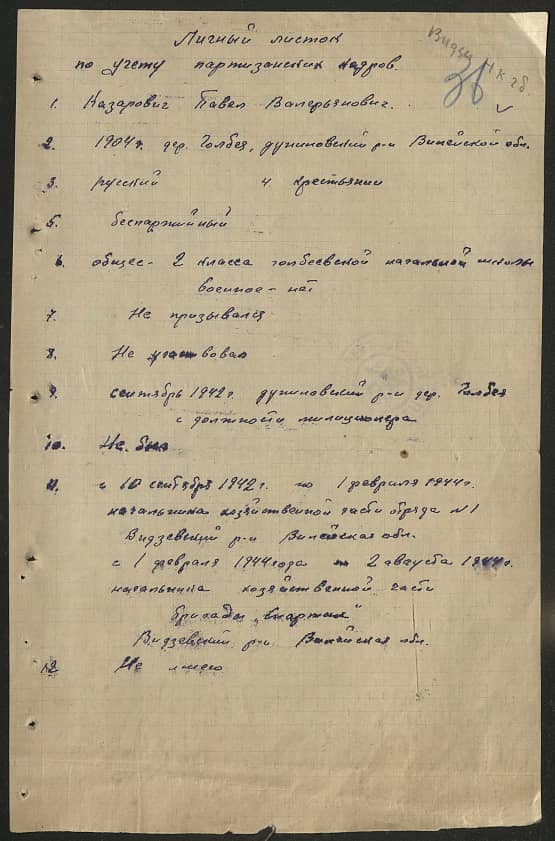 Видзы
Личный листок
по учету партизанских кадров.
1. Казарович Павел Валерьянович.
2. 1904 г. дер. Голбея, дуниловский р-н Вилейской обл.
3. русский 4 крестьянин
5. беспартийный
6. общее - 2 класса голбеевской начальной школы
военное - нет
7. Не призывался
8. Не участвовал
9. сентябрь 1942 г. дуниловский р-н дер. Голбея
с должности милиционера
10. Не был
11. с 10 сентября 1942 г. по 1 февраля 1944 г.
начальника хозяйственной части отряда №1
Видзевский р-н Вилейская обл.
с 1 февраля 1944 года по 2 августа 1944 г.
начальника хозяйственной части
бригады „Спартак"
Видзевский р-н Вилейская обл.
12 Не имею